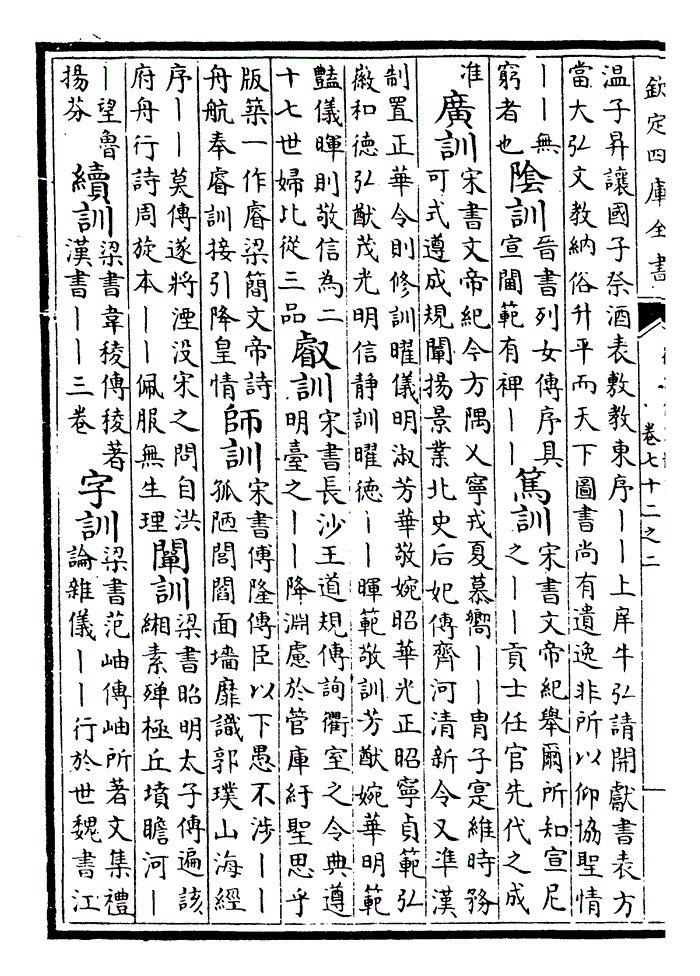 欽定四庫全書
卷七十二之二
温子昇讓國子祭酒表敷教東序——上庠牛弘請開獻書表方
當大弘文教納俗升平而天下圖書尚有遺逸非所以仰協聖情
——無
窮者也
陰訓
晉書列女傳序具
宣閫範有裨——
篤訓
宋書文帝紀舉爾所知宣尼
之——貢士任官先代之成
准
廣訓
宋書文帝紀今方隅乂寧戎夏慕嚮——胄子寔維時務
可式遵成規闡揚景業北史后妃傳齊河清新令又準漢
制置正華令則修訓曜儀明淑芳華敬婉昭華光正昭寧貞範弘
徽和德弘猷茂光明信静訓曜德——暉範敬訓芳猷婉華明範
豔儀暉則敬信為二
十七世婦比從三品
叡訓
宋書長沙王道規傳詢衢室之令典遵
明臺之——降淵慮於管庫紆聖思乎
版築一作睿梁簡文帝詩
舟航奉睿訓接引降皇情
師訓
宋書傅隆傳臣以下愚不涉——
孤陋閭閻面墻靡識郭璞山海經
序——莫傳遂將湮没宋之問自洪
府舟行詩周旋本——佩服無生理
闡訓
梁書昭明太子傳遍該
緗素殫極丘墳瞻河—
—望魯
揚芬
續訓
梁書韋稜傳稜著
漢書——三卷
字訓
梁書范岫傳岫所著文集禮
論雜儀——行於世魏書江